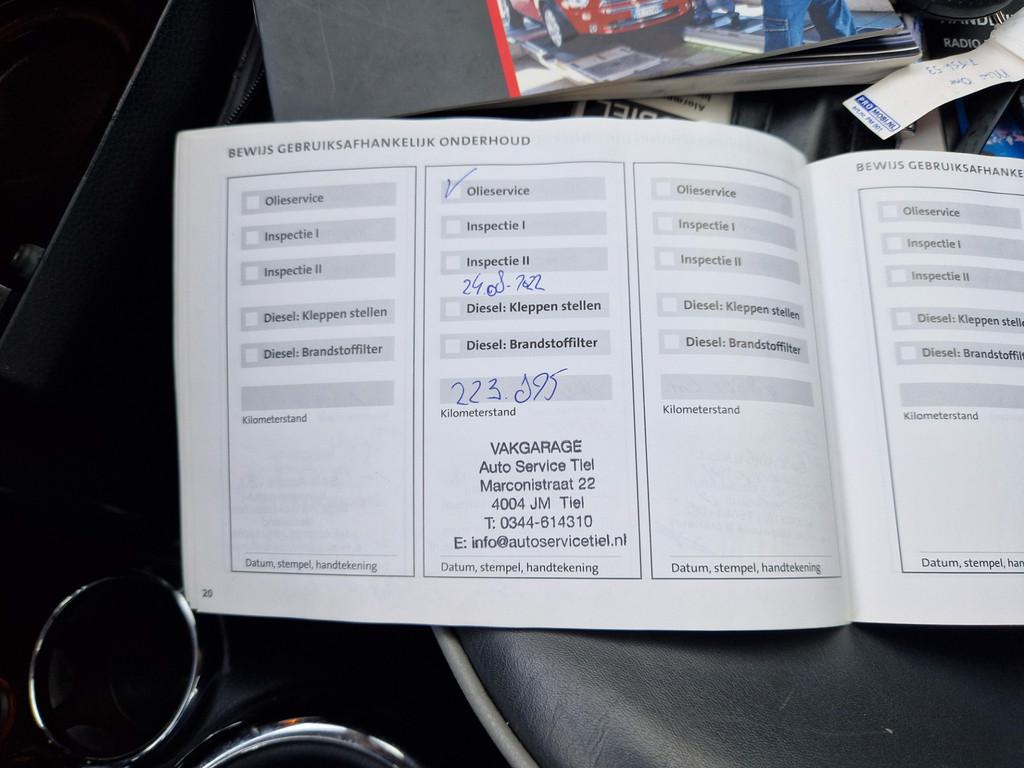 RADIO
PROMOBI.NL
BEWIJS GEBRUIKSAFHANKELIJK ONDERHOUD
Olieservice
Inspectie I
Inspectie II
Diesel: Kleppen stellen
Diesel: Brandstoffilter
Kilometerstand
Datum, stempel, handtekening
20
Olieservice
Inspectie I
Inspectie II
24.08.2022
Diesel: Kleppen stellen
Diesel: Brandstoffilter
223.195
Kilometerstand
VAKGARAGE
Auto Service Tiel
Marconistraat 22
4004 JM Tiel
T: 0344-614310
E: info@autoservicetiel.nl
Datum, stempel, handtekening
Olieservice
Inspectie I
Inspectie II
Diesel: Kleppen stellen
Diesel: Brandstoffilter
Kilometerstand
Datum, stempel, handtekening
BEWIJS GEBRUIKSAFHANKE
Olieservice
Inspectie I
Inspectie II
Diesel: Kleppen stelle
Diesel: Brandstoffilt
Kilometerstand
Datum, stempel, han